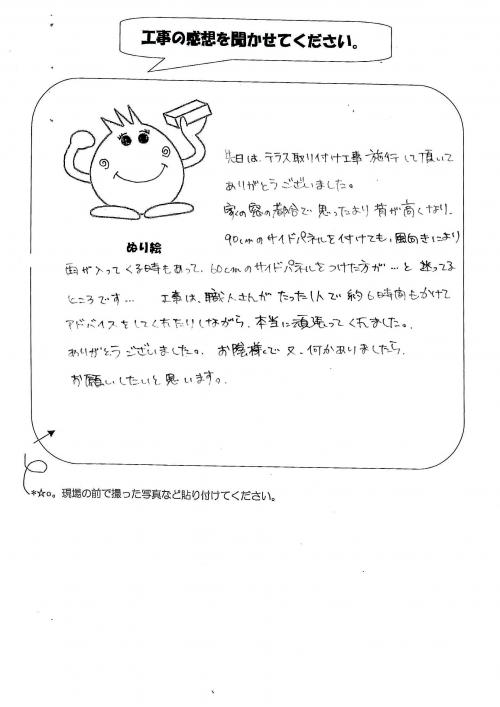 工事の感想を聞かせてください。
先日は、テラス取り付け工事 施行して頂いて
ありがとうございました。
家の窓の都合で思ったより背が高くなり、
90cmのサイドパネルを付けても、風向きにより
ぬり絵
雨が入ってくる時もあって、60cmのサイドパネルをつけた方が…と迷ってる
ところです… 工事は、職人さんがたった1人で約6時間もかけて
アドバイスをしてくれたりしながら、本当に頑張ってくれました。
ありがとうございました。お陰様で 又、何かありましたら、
お願いしたいと思います。
*☆○。現場の前で撮った写真など貼り付けてください。